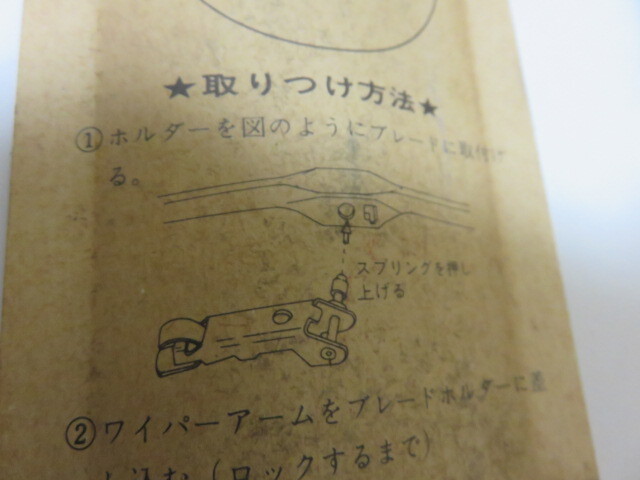 ★取りつけ方法★
①ホルダーを図のようにブレードに取付け
る。
スプリングを押し
上げる
②ワイパーアームをブレードホルダーに差
し込む(ロックするまで)